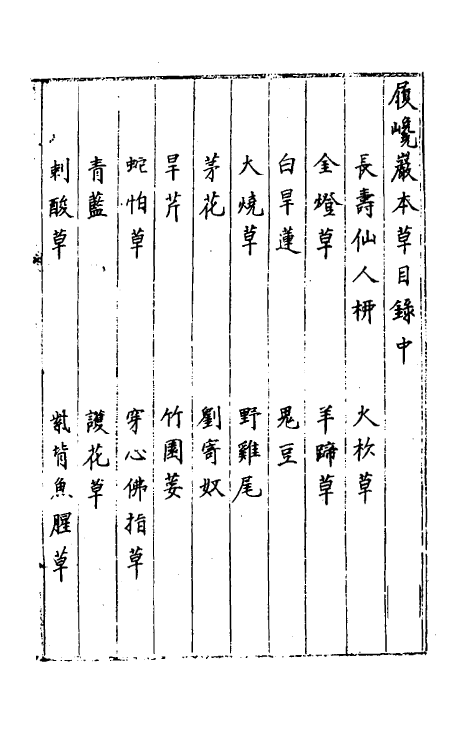 履巉巖本草目錄中
長壽仙人枬 火杴草
金燈草 羊蹄草
白旱蓮 鬼豆
大燒草 野雞尾
茅花 劉寄奴
旱芹 竹園荽
蛇怕草 穿心佛指草
青藍 護花草
刺酸草 紫背魚腥草